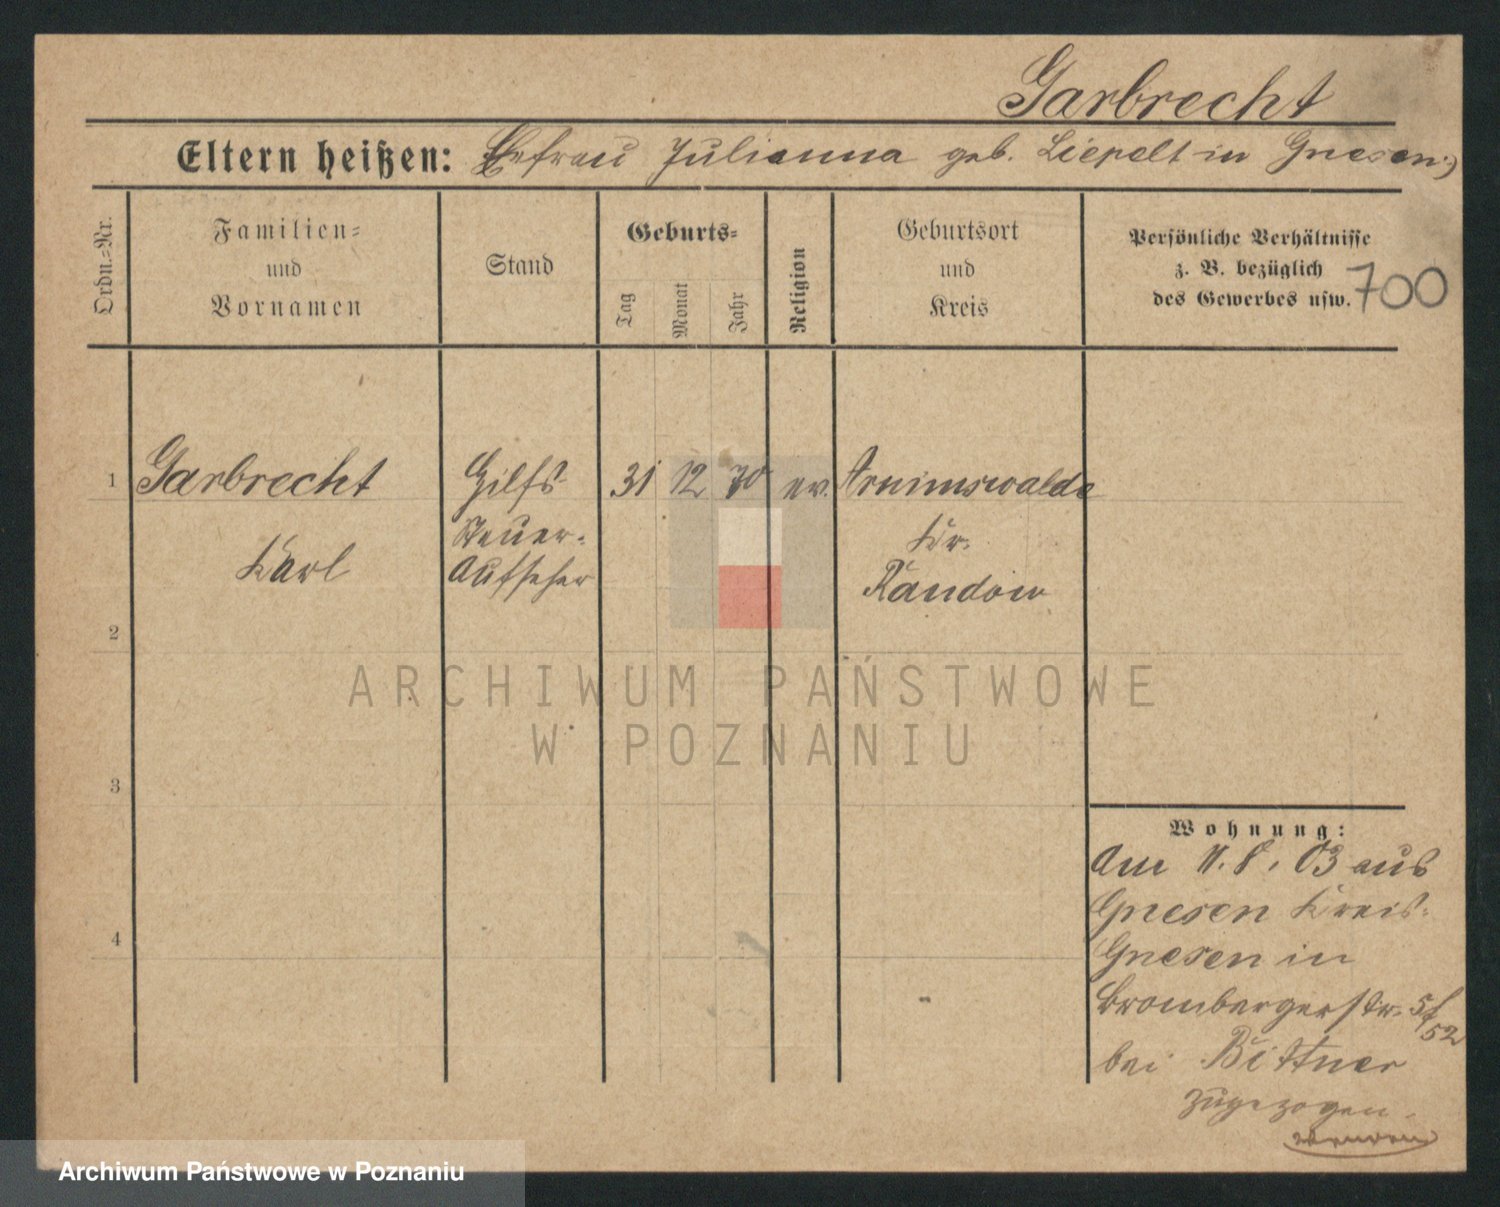 Garbrecht
Eltern heißen: Ehefrau Julianna geb. Liepelt in Gnesen
Ordn.=Nr.
Familien=
und
Vornamen
Stand
Geburts=
Tag
Monat
Jahr
Religion
Geburtsort
und
Kreis
Persönliche Verhältnisse
z. B. bezüglich
des Gewerbes usw.
700
1 Garbrecht Hilfs 31 12 70 ev. Arnimswalde
Steuer- Kr.
Karl Aufseher Randow
2
3
4
Wohnung:
Am 11.8.03 aus
Gnesen Kreis
Gnesen in
Brombergerstr. 51/52
bei Bittner
zugezogen.
ARCHIWUM PAŃSTWOWE
W POZNANIU
Archiwum Państwowe w Poznaniu